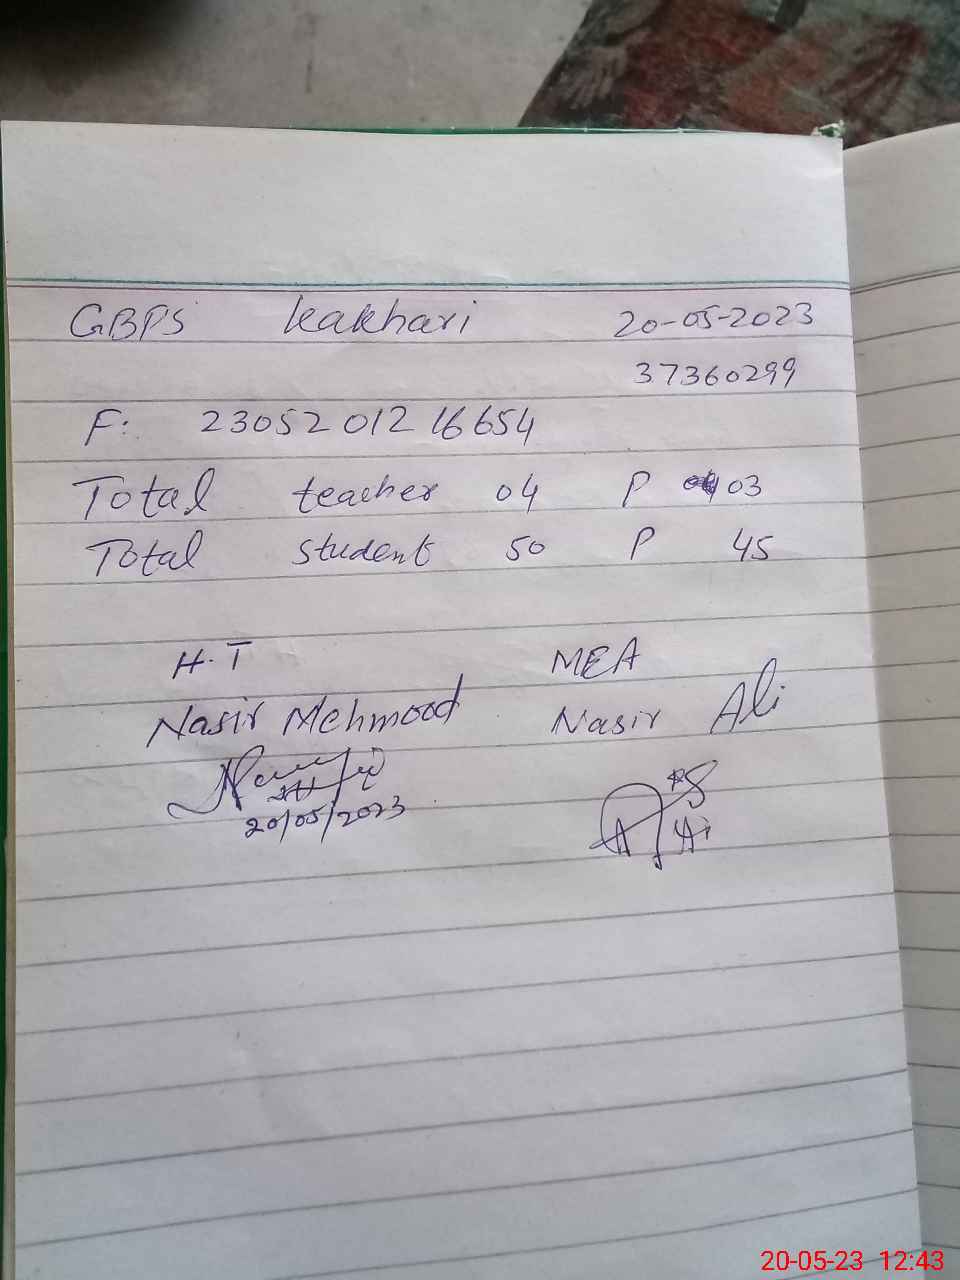 GBPS Kakhari 20-05-2023
37360299
F: 2305201216654
Total teacher 04 P 03
Total student 50 P 45
H.T MEA
Nasir Mehmood Nasir Ali
20/05/2023
20-05-23 12:43